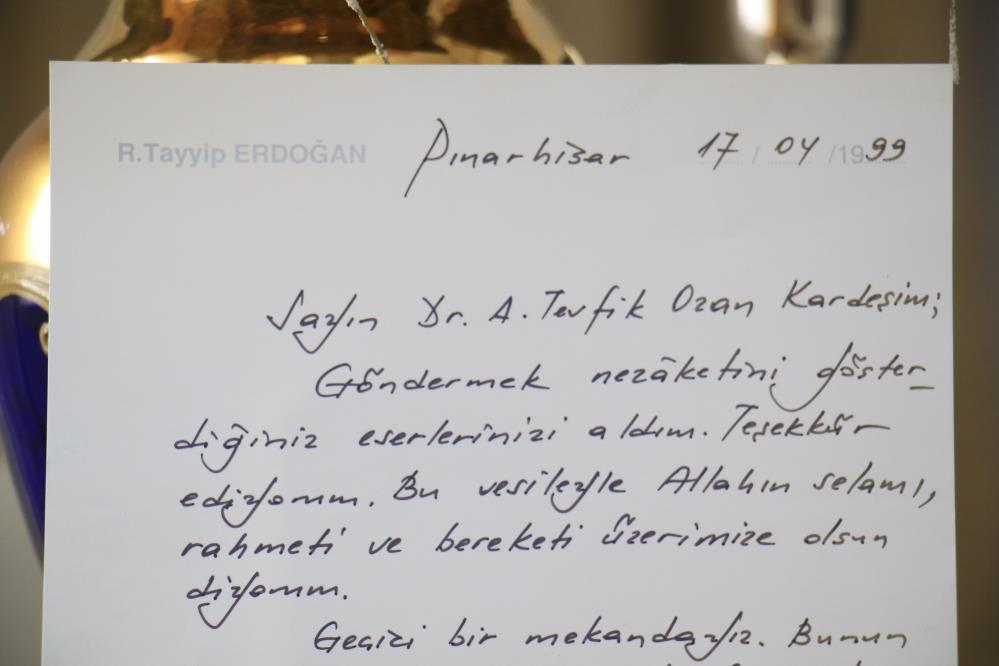 R.Tayyip ERDOĞAN Pınarhisar 17 / 04 /1999
Sayın Dr. A. Tevfik Ozan Kardeşim;
Göndermek nezâketini göster-
diğiniz eserlerinizi aldım. Teşekkür
ediyorum. Bu vesileyle Allahın selamı,
rahmeti ve bereketi üzerimize olsun
diyorum.
Geçici bir mekandayız. Bunun